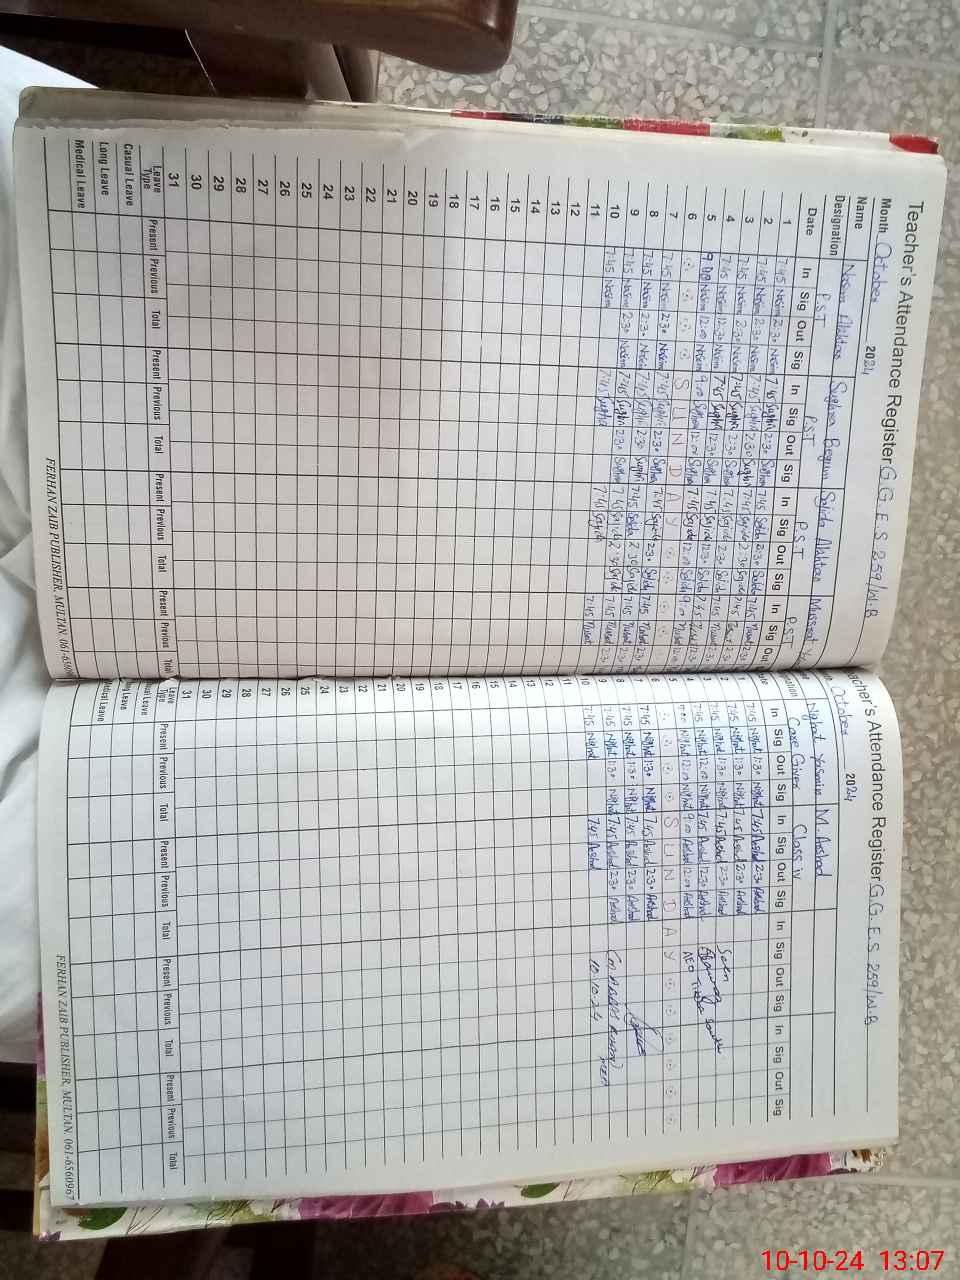 Teacher's Attendance Register G.G.E.S 259/W.B
Month October 2024
Name Nasim Akhtar Sughra Begum Sajida Akhtar Mussarat
Designation P.S.T P.S.T P.S.T P.S.T
Date In Sig Out Sig In Sig Out Sig In Sig Out Sig In Sig Out
1 7:45 Nasim 2:30 Nasim 7:45 Sughra 2:30 Sughra 7:45 Sajida 2:30 Sajida 7:45
2 7:45 Nasim 2:30 Nasim 7:45 Sughra 2:30 Sughra 7:45 Sajida 2:30 Sajida 7:45
3 7:45 Nasim 2:30 Nasim 7:45 Sughra 2:30 Sughra 7:45 Sajida 2:30 Sajida 7:45
4 7:45 Nasim 12:30 Nasim 7:45 Sughra 12:30 Sughra 7:45 Sajida 12:30 Sajida 7:45
5 9:00 Nasim 12:00 Nasim 9:00 Sughra 12:00 Sughra 7:45 Sajida 12:00 Sajida 9:00
6 S U N D A Y
7 7:45 Nasim 2:30 Nasim 7:45 Sughra 2:30 Sughra 7:45 Sajida 2:30 Sajida 7:45
8 7:45 Nasim 2:30 Nasim 7:45 Sughra 2:30 Sughra 7:45 Sajida 2:30 Sajida 7:45
9 7:45 Nasim 2:30 Nasim 7:45 Sughra 2:30 Sughra 7:45 Sajida 2:30 Sajida 7:45
10 7:45 Nasim 7:45 Sughra 7:45 Sajida 7:45
11
12
13
14
15
16
17
18
19
20
21
22
23
24
25
26
27
28
29
30
31
Leave Type Present Previous Total Present Previous Total Present Previous Total Present Previous Total
Casual Leave
Long Leave
Medical Leave
FERHAN ZAIB PUBLISHER, MULTAN.
Attendance Register G.G.E.S 259/W.B
October 2024
Nighat Yasmin M. Arshad
Care Giver Class iv
In Sig Out Sig In Sig Out Sig In Sig Out Sig In Sig Out Sig
1 7:45 Nighat 1:30 Nighat 7:45 Arshad 2:30 Arshad
2 7:45 Nighat 1:30 Nighat 7:45 Arshad 2:30 Arshad
3 7:45 Nighat 1:30 Nighat 7:45 Arshad 2:30 Arshad Seen
4 7:45 Nighat 12:00 Nighat 7:45 Arshad 12:30 Arshad
5 9:00 Nighat 12:00 Nighat 9:00 Arshad 12:00 Arshad AEO
6 S U N D A Y
7 7:45 Nighat 1:30 Nighat 7:45 Arshad 2:30 Arshad
8 7:45 Nighat 1:30 Nighat 7:45 Arshad 2:30 Arshad
9 7:45 Nighat 1:30 Nighat 7:45 Arshad 2:30 Arshad
10 7:45 Nighat 7:45 Arshad 10.10.24
11
12
13
14
15
16
17
18
19
20
21
22
23
24
25
26
27
28
29
30
31
Leave Type Present Previous Total Present Previous Total Present Previous Total Present Previous Total
Casual Leave
Long Leave
Medical Leave
FERHAN ZAIB PUBLISHER, MULTAN. 061-6560967
10-10-24 13:07